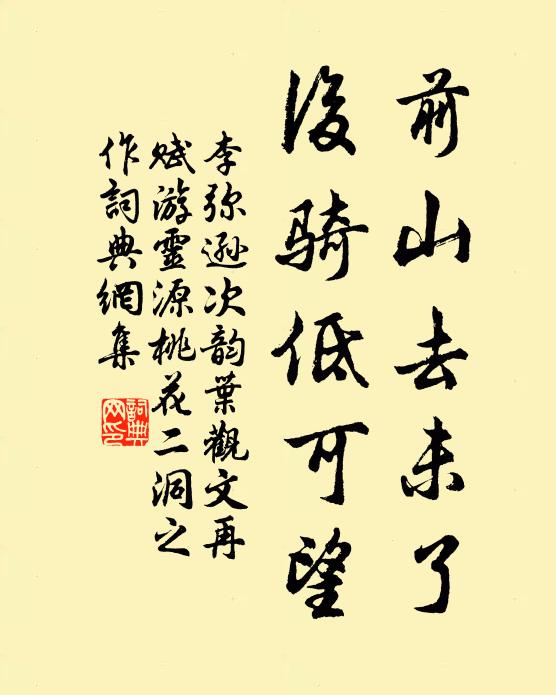 前山去未了
後骑低可望
李弥逊次韵葉觀文再
赋游靈源桃花二洞之
作詞典網集
詞典網印